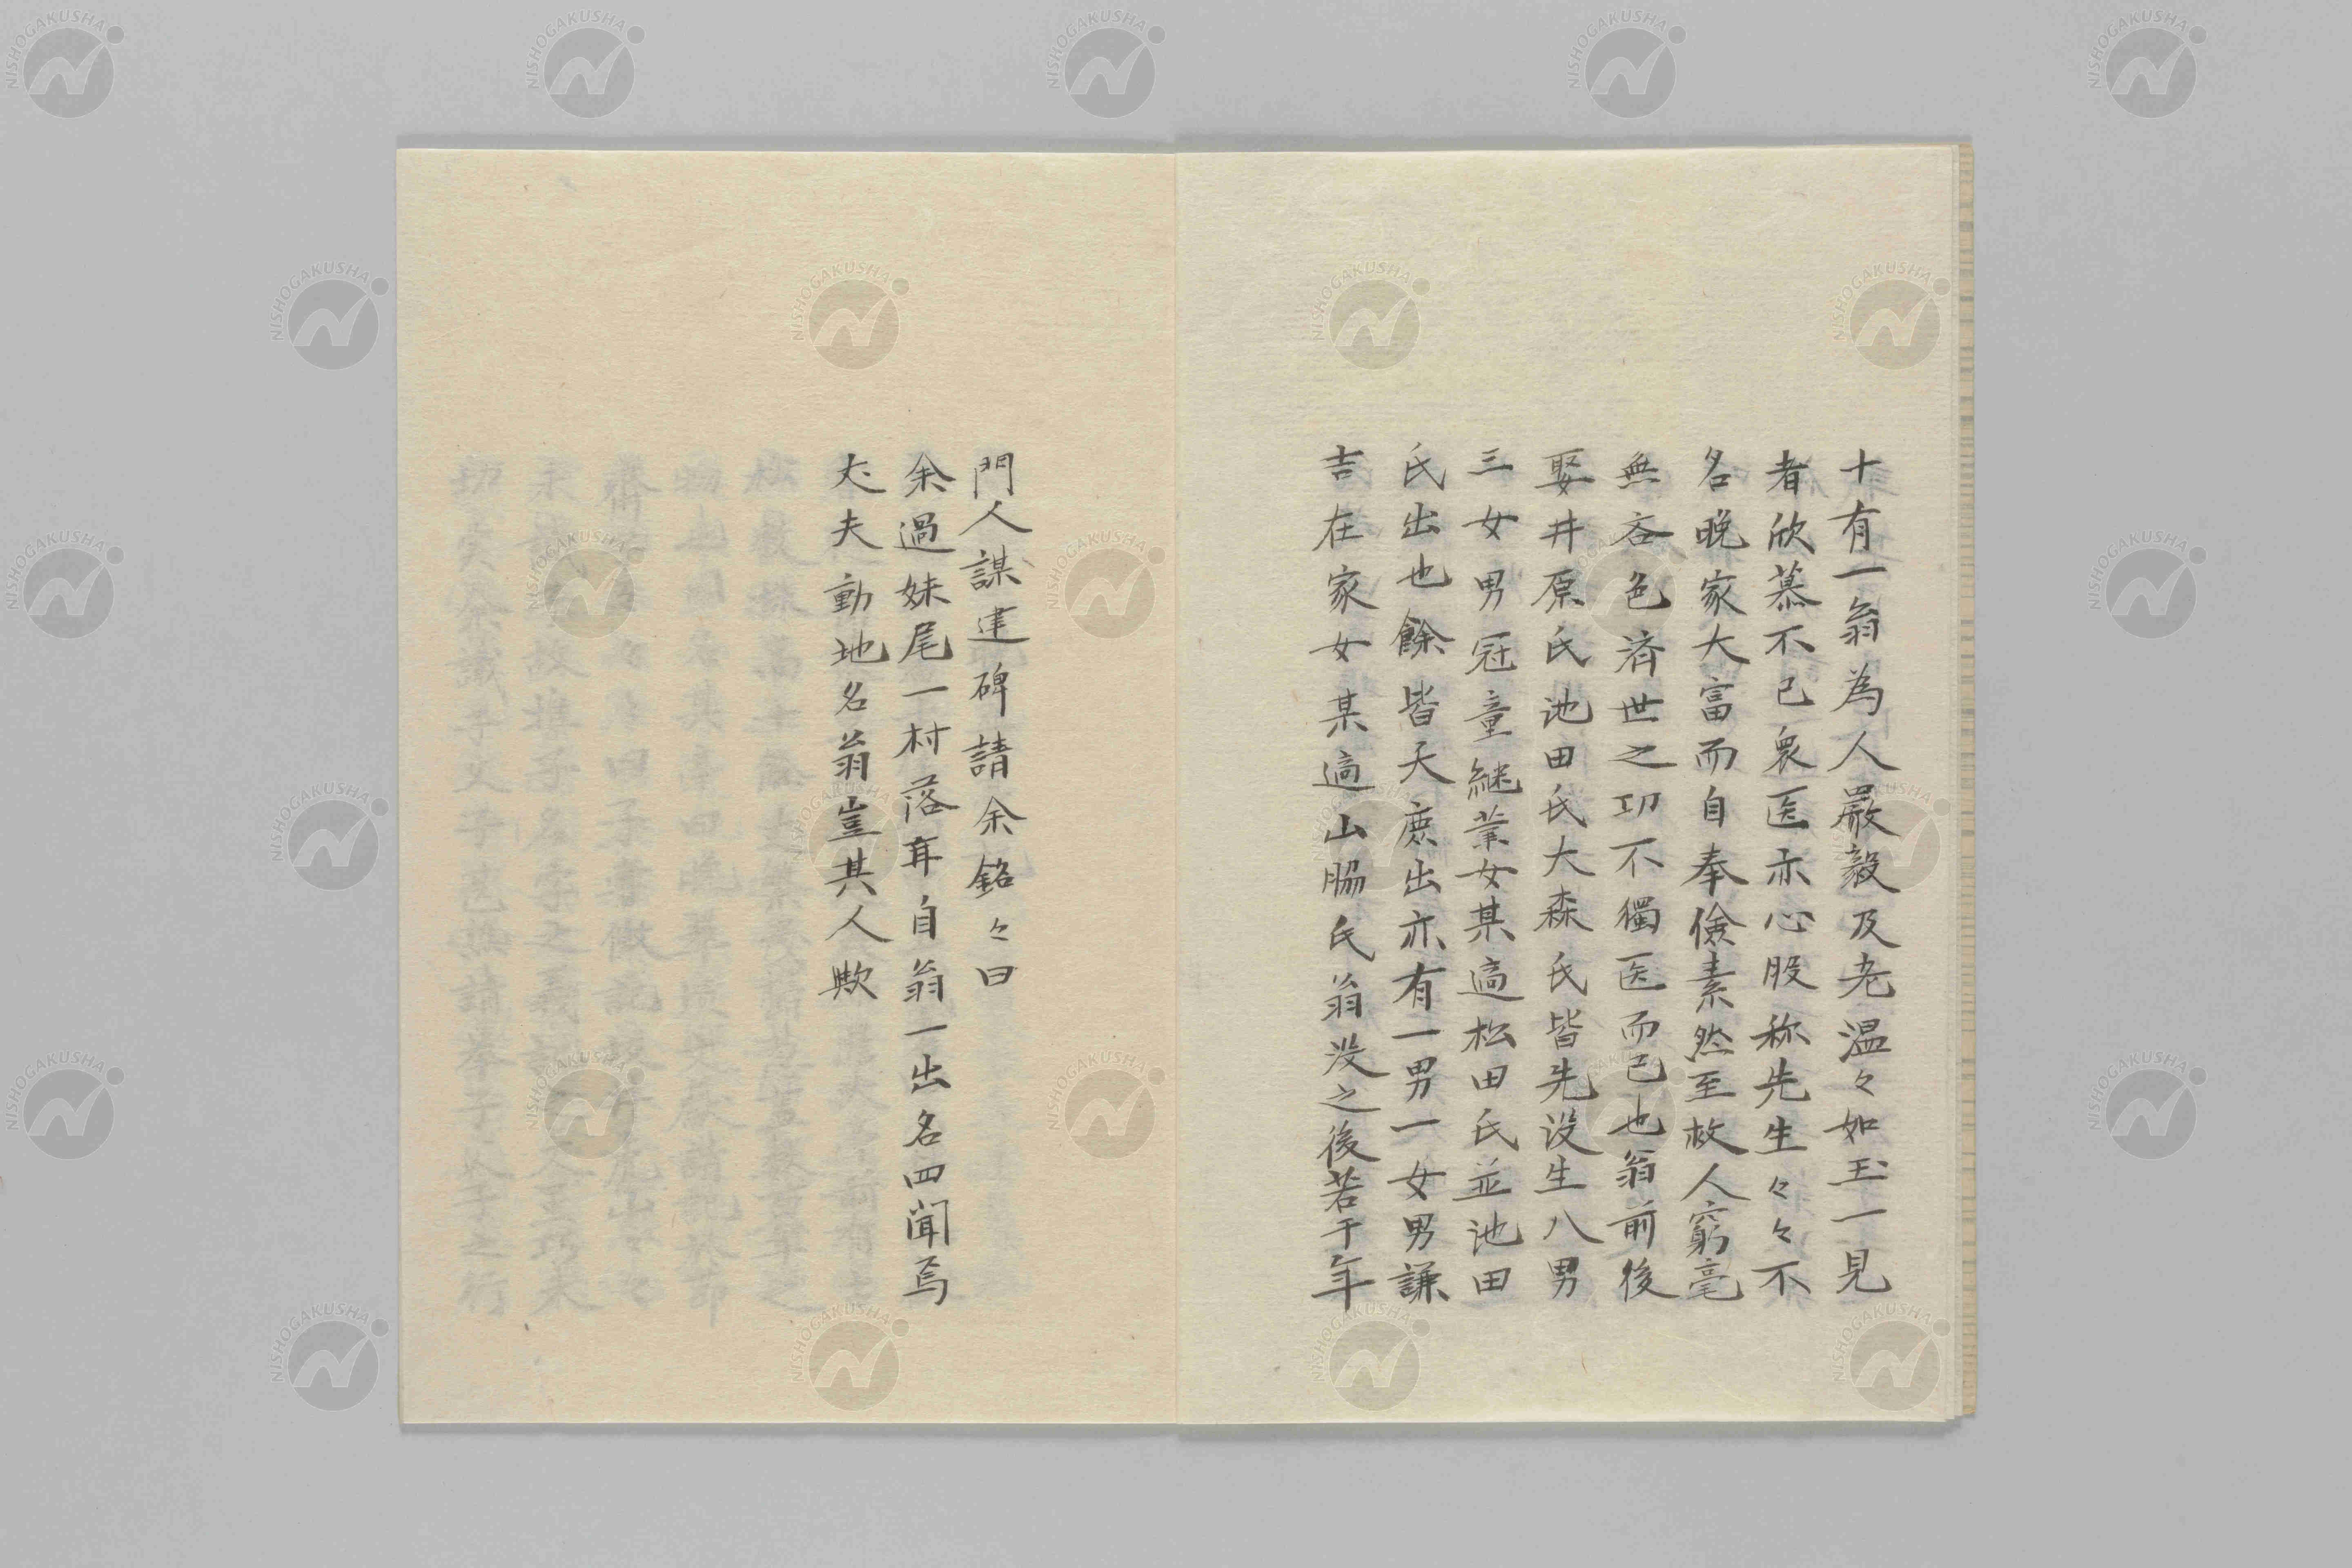 十有一翁為人嚴毅及老温々如玉一見
者欣慕不已衆医亦心股称先生々々不
名晩家大富而自奉儉素然至救人窮毫
無吝色済世之功不獨医而已也翁前後
娶井原氏池田氏大森氏皆先没生八男
三女男冠童継業女某適松田氏並池田
氏出也餘皆夭庶出亦有一男一女男謙
吉在家女某適山脇氏翁没之後若干年
門人謀建碑請余銘々曰
余過妹尾一村落耳自翁一出名四聞焉
丈夫動地名翁豈其人歟
NISHOGAKUSHA